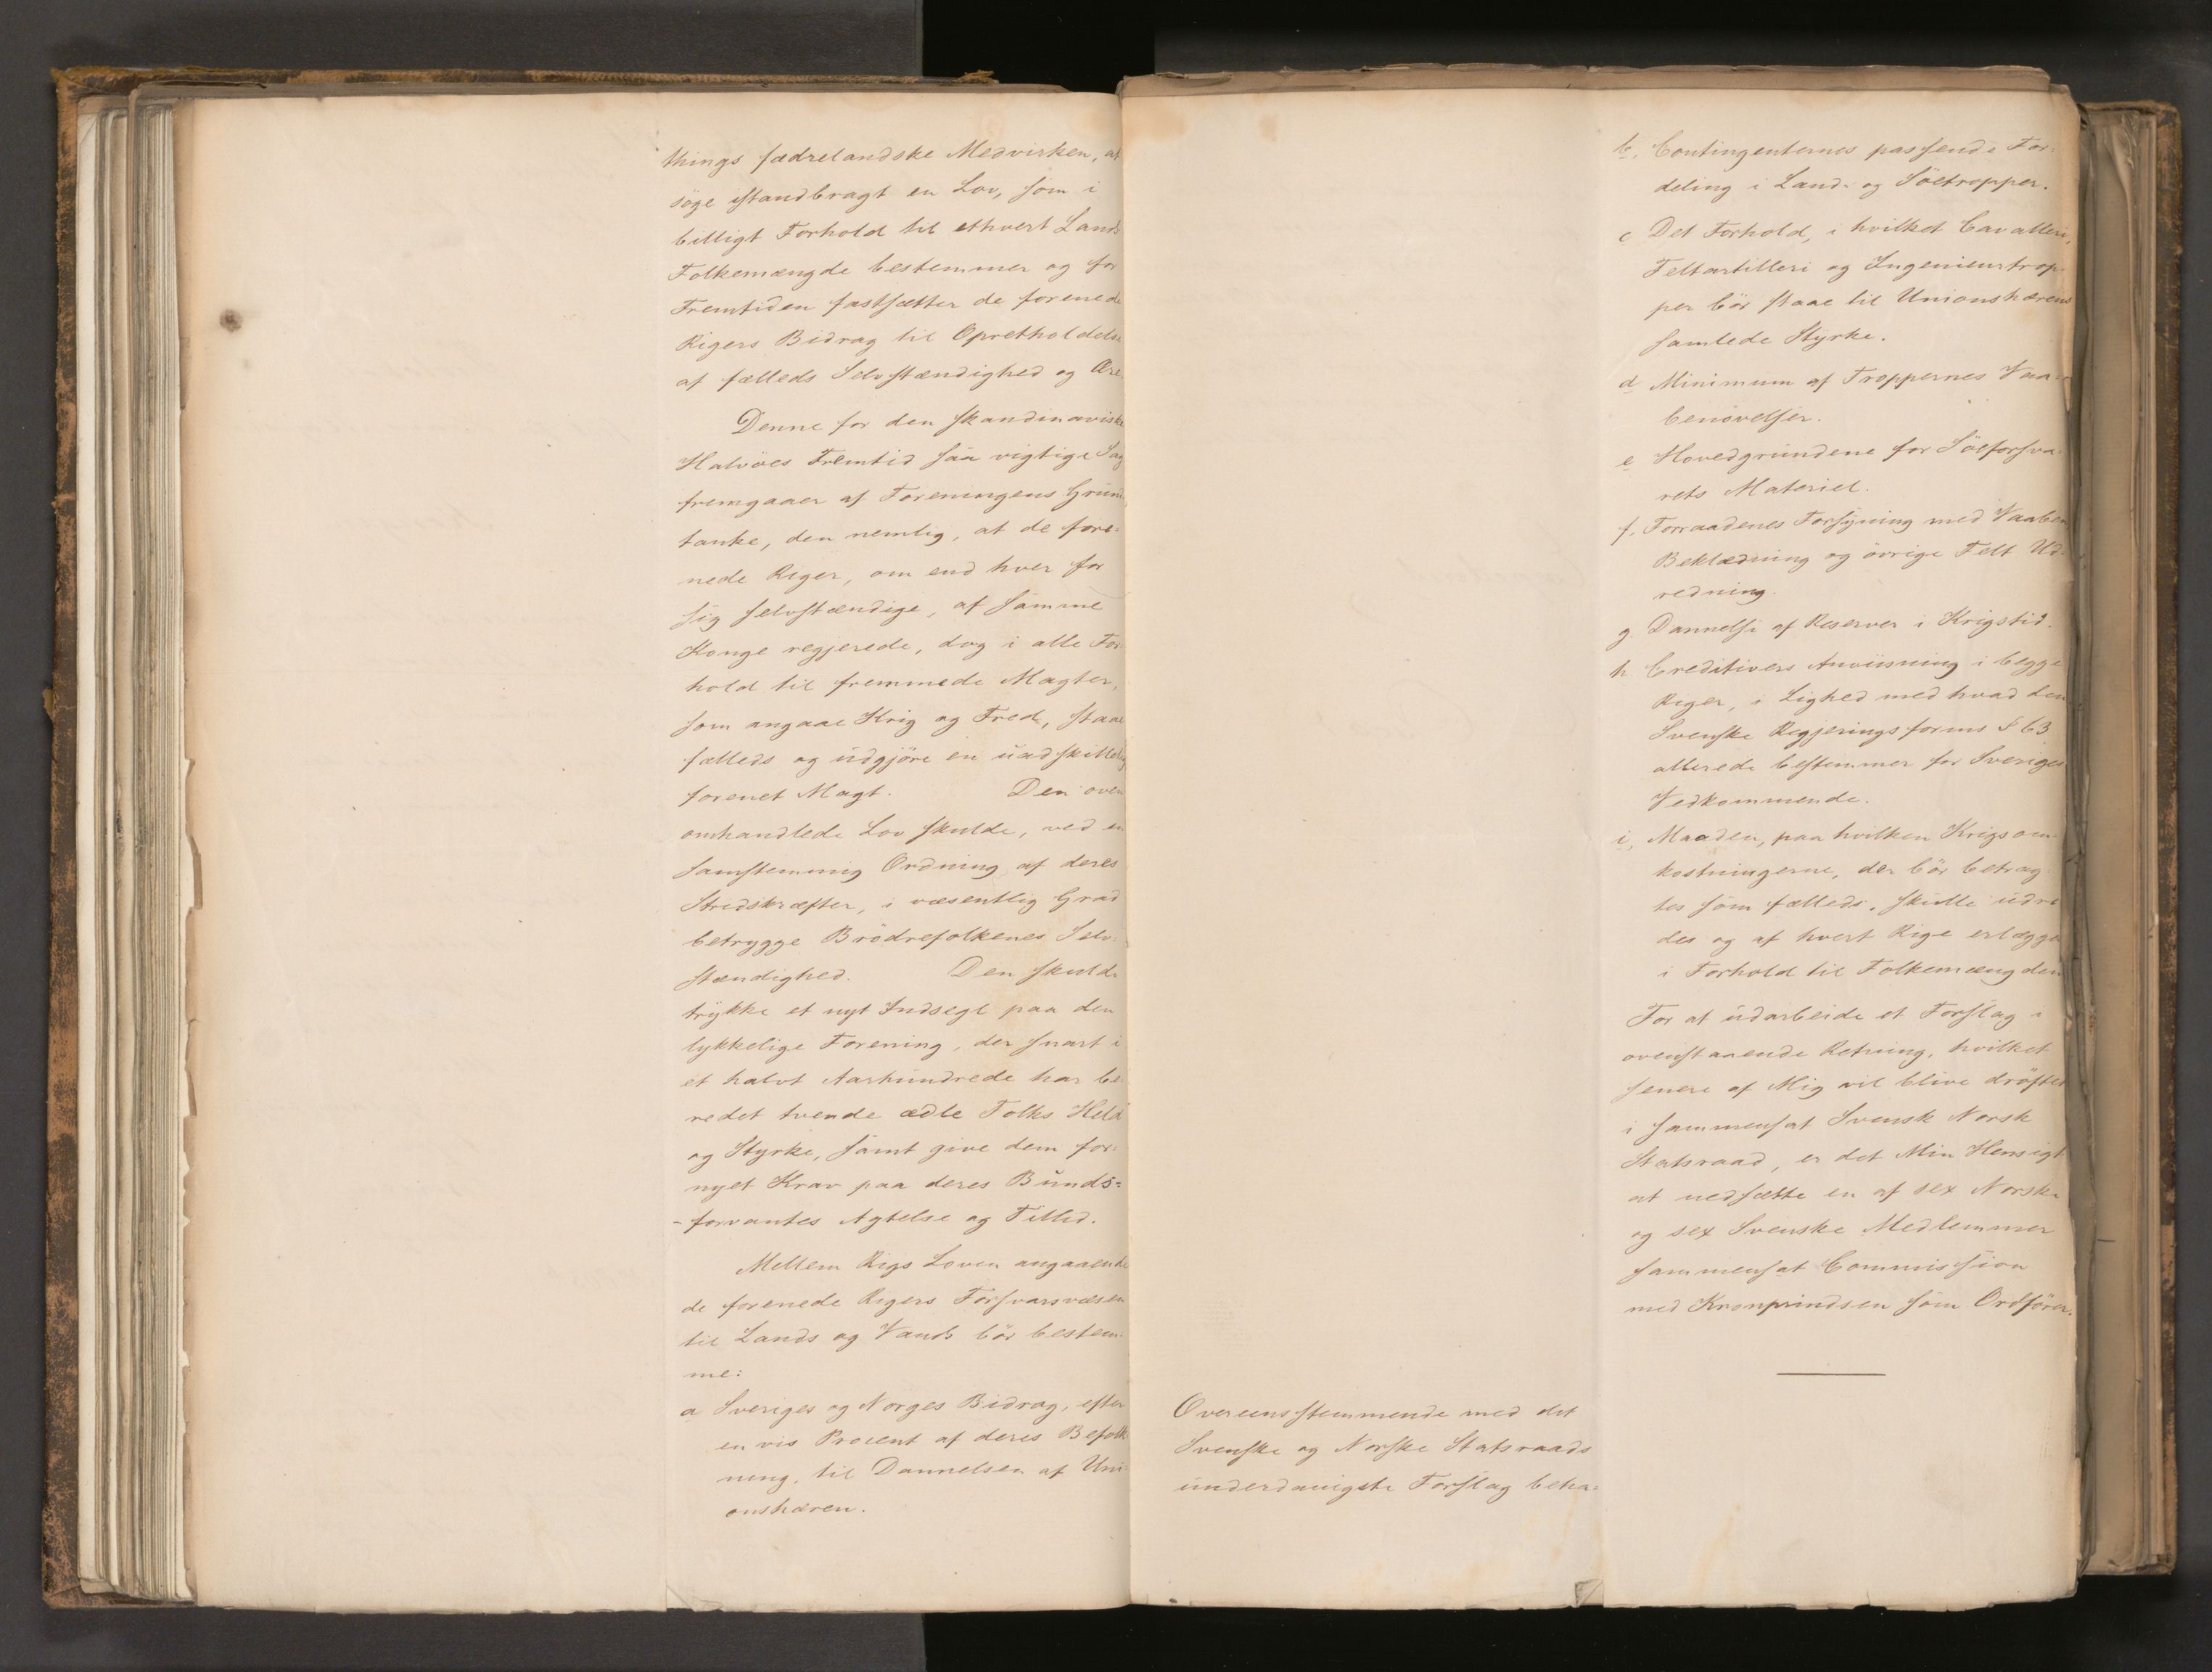 things fædrelandske Medvirken, at
söge istandbragt en Lov, som i
billigt Forhold til ethvert Lands
Folkemængde bestemmer og for
Fremtiden fastsætter de forenede
Rigers Bidrag til Opretholdelse
af fælleds Selvstændighed og Ære.
Denne for den skandinaviske
Halvöes Fremtid saa vigtige Sag
fremgaaer af Foreningens Grund
tanke, den nemlig, at de fore=
nede Riger, om end hver for
sig selvstændige, af samme
Konge regjerede, dog i alle For
hold til fremmede Magter,
som angaae Krig og Fred, staae
fælleds og udgjöre en uadskillelig
forenet Magt. Den oven
omhandlede Lov skulde, ved en
samstemmig Ordning af deres
Stridskræfter, i væsentlig Grad
betrygge Brödrefolkenes Selv=
stændighed. Den skulde
trykke et nyt Indsegl paa den
lykkelige Forening, der snart i
et halvt Aarhundrede har be
redet tvende ædle Folks Held
og Styrke, samt give dem for=
nyet Krav paa deres Bunds=
-forvantes Agtelse og Tillid.
Mellem Rigs Loven angaaende
de forenede Rigers Forsvarsvæsen
til Lands og Vands bör bestem=
me:
a Sveriges og Norges Bidrag, efter
en vis Procent af deres Befolk
ning, til Dannelsen af Uni
onshæren.
Overeensstemmende med det
Svenske og Norske Statsraads
underdanigste Forslag beha=
b, Contingenternes passende For=
deling i Land- og Söetropper.
c Det Forhold, i hvilket Cavalleri,
Feltartilleri og Ingenieurtrop=
per bör staae til Unionshærens
samlede Styrke.
d Minimum af Troppernes Vaa=
benövelser.
e Hovedgrundene for Söeforsva=
rets Materiel.
f. Forraadenes Forsyning med Vaaben
Beklædning og övrige Felt Ud=
redning.
g Dannelse af Reserver i Krigstid.
h Creditivers Anviisning i begge
Riger, i Lighed med hvad den
Svenske Regjeringsforms § 63
allerede bestemmer for Sveriges
Vedkommende.
i, Maaden, paa hvilken Krigsom=
kostningerne, der bör betrag
tes som fælleds, skulle udre
des og af hvert Rige erlægges
i Forhold til Folkemængden
For at udarbeide et Forslag i
ovenstaaende Retning, hvilket
senere af Mig vil blive dröftet
i sammensat Svensk Norsk
Statsraad, er det Min Hensigt
at nedsætte en af sex Norske
og sex Svenske Medlemmer
sammensat Commission
med Kronprindsen som Ordförer.